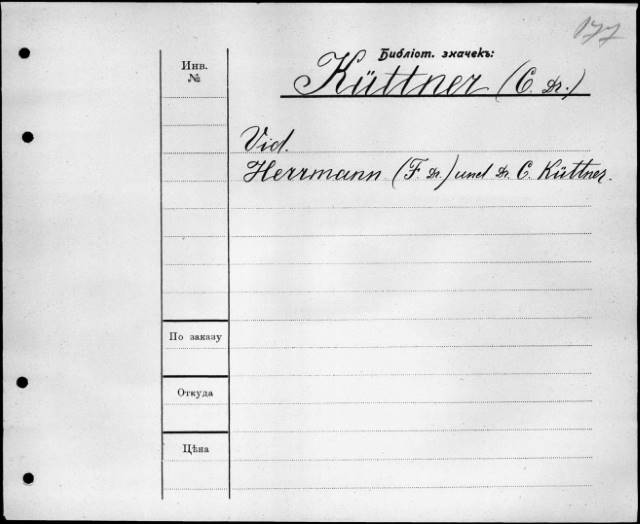 177
Библіот. значекъ:
Инв.
№
Küttner (C. Dr.)
Vid.
Herrmann (F. Dr.) und Dr. C. Küttner.
По заказу
Откуда
Цѣна